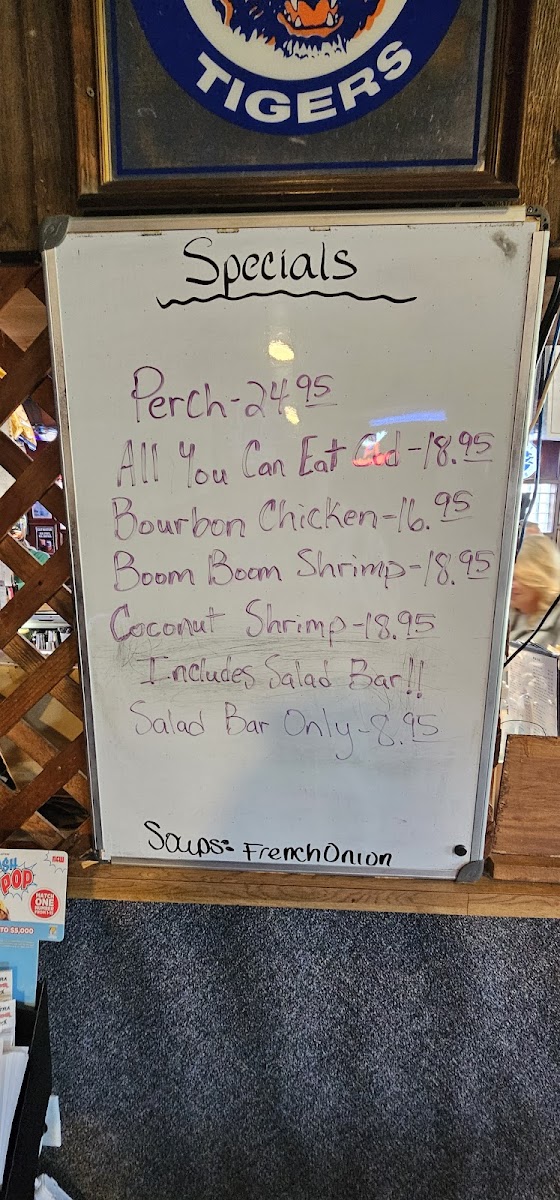 TIGERS
Specials
Perch-24 95
All You Can Eat Cod-18.95
Bourbon Chicken-16.95
Boom Boom Shrimp-18.95
Coconut Shrimp-18.95
Includes Salad Bar!!
Salad Bar Only-8.95
Soups: French Onion
POP
MATCH
ONE
TO $5,000